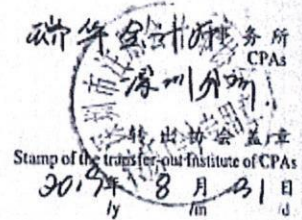 瑞华会计师事务所
CPAs
深圳分所
转出协会盖章
Stamp of the transfer-out Institute of CPAs
2019年 8月 31日
/y /m /d